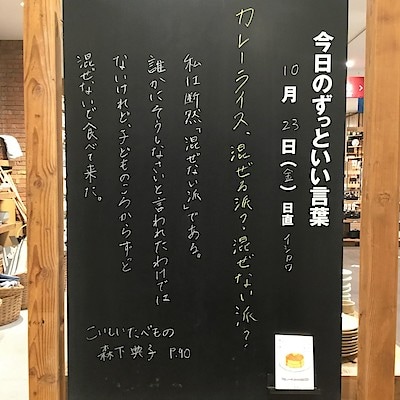 今日のずっといい言葉
10月23日(金)日直 イシカワ
カレーライス、混ぜる派?混ぜない派?
私は断然「混ぜない派」である。
誰かにそうしなさいと言われたわけでは
ないけれど、子どものころからずっと
混ぜないで食べて来た。
こいしいたべもの
森下典子 P.90